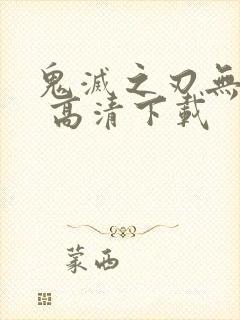 鬼滅之刃無
高清下載
蒙西